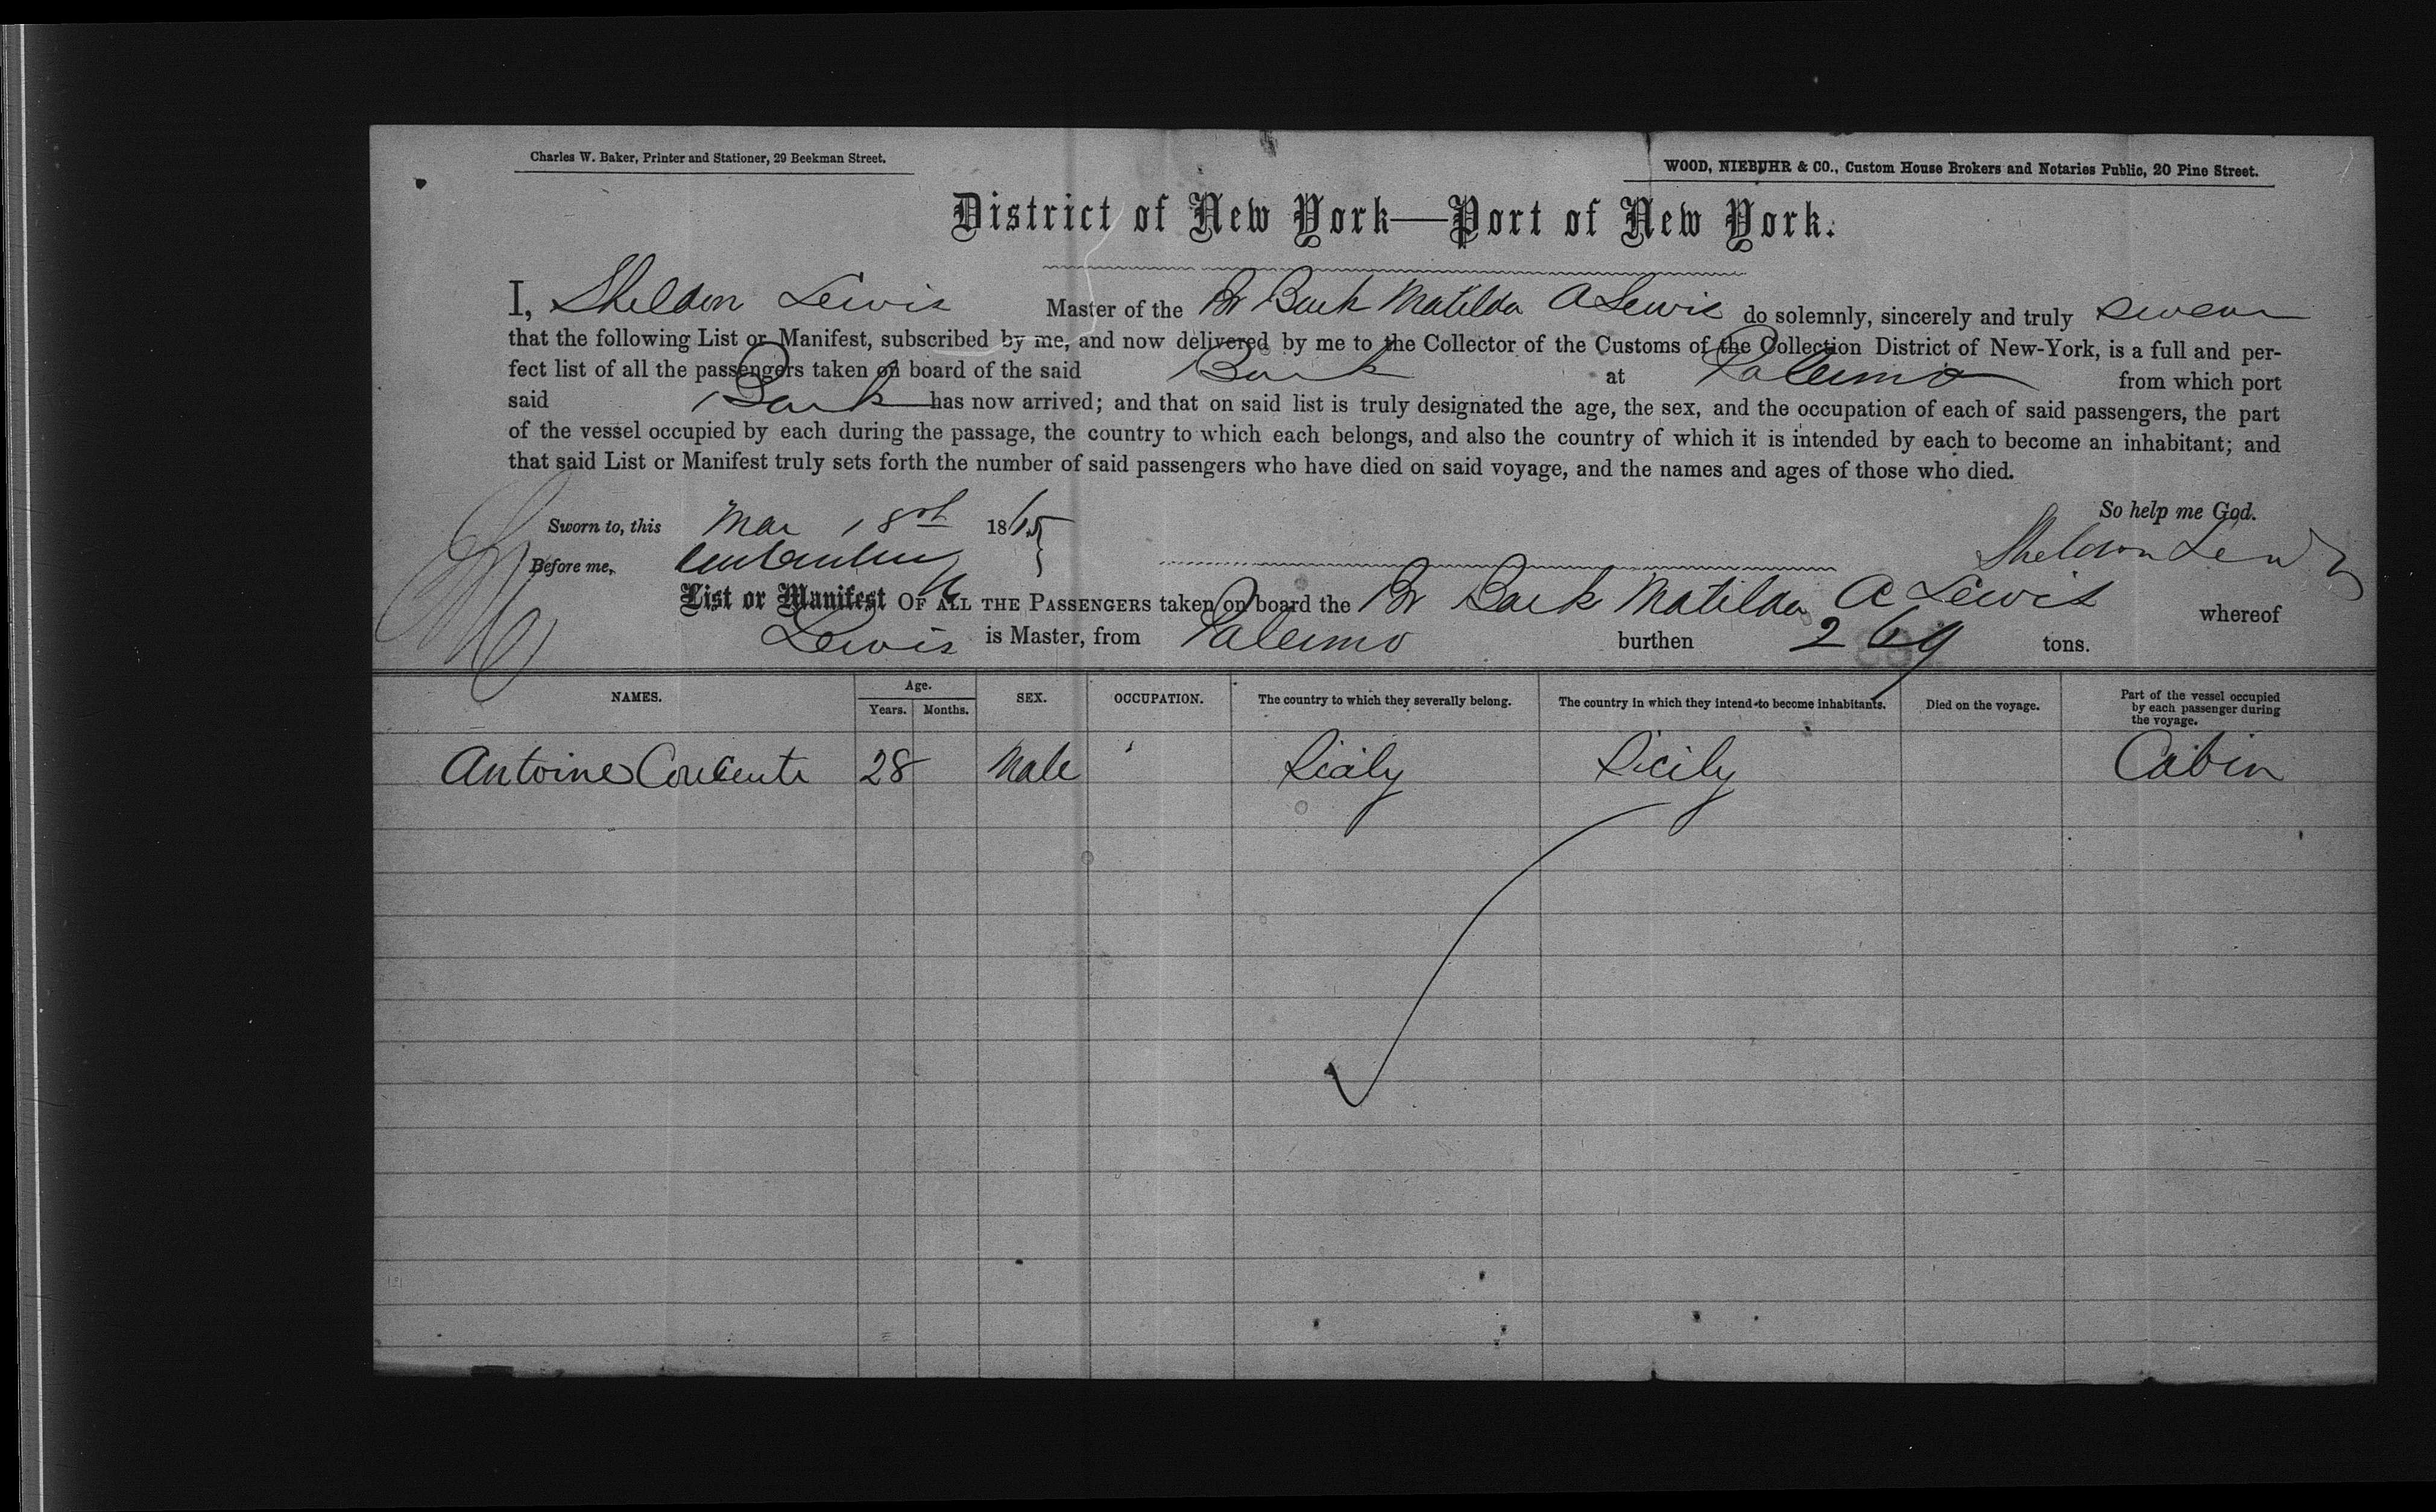 Charles W. Baker, Printer and Stationer, 29 Beekman Street.
WOOD, NIEBUHR & CO., Custom House Brokers and Notaries Public, 20 Pine Street.
District of New York—Port of New York.
I, Sheldon Lewis Master of the Br Bark Matilda A Lewis do solemnly, sincerely and truly swear
that the following List or Manifest, subscribed by me, and now delivered by me to the Collector of the Customs of the Collection District of New-York, is a full and per-
fect list of all the passengers taken on board of the said Bark at Palermo from which port
said Bark has now arrived; and that on said list is truly designated the age, the sex, and the occupation of each of said passengers, the part
of the vessel occupied by each during the passage, the country to which each belongs, and also the country of which it is intended by each to become an inhabitant; and
that said List or Manifest truly sets forth the number of said passengers who have died on said voyage, and the names and ages of those who died.
So help me God.
Sworn to, this Mar 18 1865
Sheldon Lewis
Before me,
List or Manifest OF ALL THE PASSENGERS taken on board the Br Bark Matilda A Lewis whereof
Lewis is Master, from Palermo burthen 269 tons.
NAMES. Age. Years. Months. SEX. OCCUPATION. The country to which they severally belong. The country in which they intend to become inhabitants. Died on the voyage. Part of the vessel occupied by each passenger during the voyage.
Antoine 28 Male Sicily Sicily Cabin